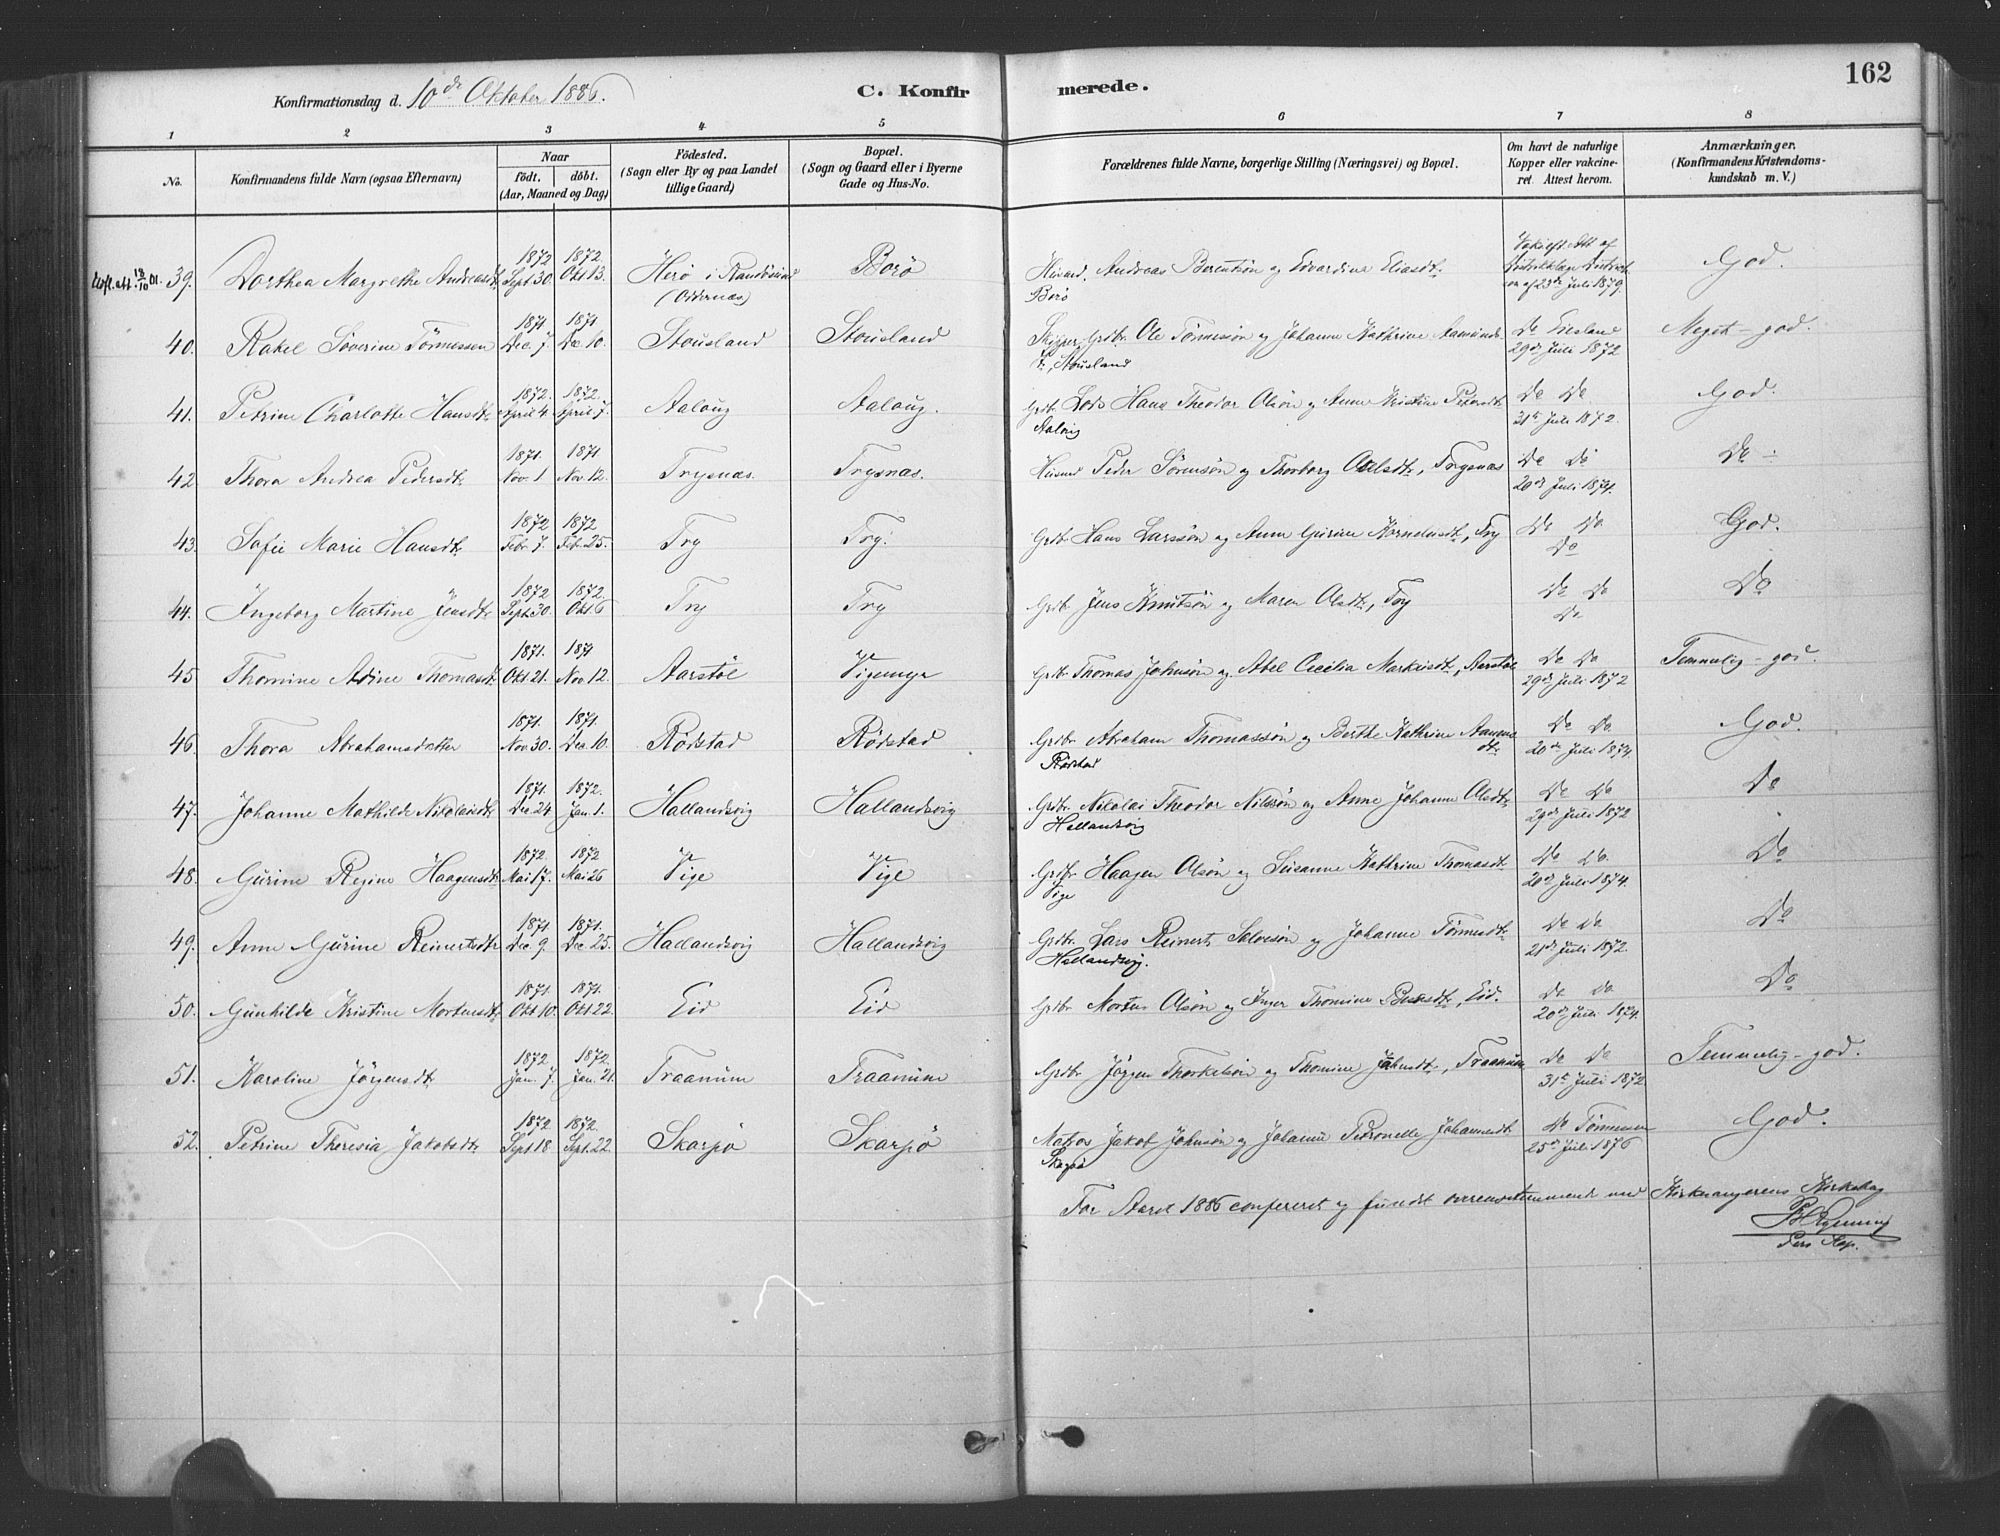 162
Konfirmationsdag d. 10de Oktober 1886.
C. Konfirmerede.
1 2 3 4 5 6 7 8
No.
Konfirmandens fulde Navn (ogsaa Efternavn)
Naar
födt. döbt.
(Aar, Maaned og Dag)
Födested.
(Sogn eller By og paa Landet
tillige Gaard)
Bopæl.
(Sogn og Gaard eller i Byerne
Gade og Hus-No.
Forældrenes fulde Navne, borgerlige Stilling (Næringsvei) og Bopæl.
Om havt de naturlige
Kopper eller vakcine-
ret. Attest herom.
Anmærkninger.
(Konfirmandens Kristendoms-
kundskab m. V.)
39. Dorthea Margrethe Andreasdt. 1872 Sept. 30. 1872. Okt 13. Herö i Randösund (Oddernæs) Borö Andreas Berentsön og Edvardine Eliasdt. Borö 23de Juli 1879. God.
40. Rakel Severine Tönnessen 1871. Dec. 7. 1871 Dec 10. Stousland Stousland Skipper, Grdbr. Ole Tönnesön og Johanne Kathrine Aamunds-
dt., Stousland Do 29de Juli 1872 Meget-god.
41. Petrine Charlotte Hansdt. 1872. April 4. 1872. April 7. Aaloug Aaloug. Grdbr. Lods Hans Theodor Olsön og Anne Kristine Pedersdt. Do Do 31te Juli 1872. God.
42 Thora Andrea Pedersdt. 1871. Nov. 1 1871 Nov. 12. Trysnæs Trysnæs. Husmd Peder Sörensön og Thorborg Olsdt., Trysnæs Do Do 20de Juli 1874. Do
43. Sofie Marie Hansdt. 1872 Febr. 7. 1872 Feb. 25. Try Try. Grdbr. Hans Larssön og Anne Gurine Korneliusdt., Try Do Do Do God.
44. Ingeborg Martine Jensdt. 1872 Sept. 30. 1872. Okt. 6 Try Try Grdbr. Jens Knutsön og Maren Olsdt., Try Do Do Do Do
45 Thomine Adine Thomasdt. 1871. Okt. 21. 1871 Nov. 12. Aarstöl Vigemyr Grdbr. Thomas Johnsön og Abel Cecilia Markusdt., Aarstöl Do Do 29de Juli 1872 Temmelig-god.
46. Thora Abrahamsdatter 1871. Nov 30. 1871. Dec. 10. Rödstad Rödstad Grdbr. Abraham Thomassön og Berthe Kathrine
dt. Rödstad Do Do 20de Juli 1874. God.
47. Johanne Mathilde Nikolaisdt. 1871. Dec 24. 1872. Jan. 1. Hallandsvig Hallandsvig Grdbr. Nikolai Theodor Nilssön og Anne Johanne Olsdt.
Hallandsvig Do Do 29de Juli 1872 Do
48. Gurine Regine Haagensdt. 1872. Mai 17. 1872 Mai 26 Vige Vige Grdbr. Haagen Olsön og Susanne Kathrine Thomasdt.
Vige Do Do 20de Juli 1874. Do
49. Anne Gurine Reinertsdt. 1871. Dec 9. 1871. Dec 25. Hallandsvig Hallandsvig Grdbr. Lars Reinert Salvesön og Johanne Tönnesdt.
Hallandsvig. Do Do 21de Juli 1872. Do
50. Gunhilde Kristine Mortensdt. 1871. Okt 10. 1871. Okt 22. Eid Eid Grdbr. Morten Olsön og Inger Thomine, Eid. Do Do 20de Juli 1874. Do
51. Karoline Jörgensdt. 1872 Jan. 7. 1872. Jan. 21. Traanum Traanum Grdbr. Jörgen Thorkelsön og Thomine Jahnsdt., Traanum Do Do 31te Juli 1872 Temmelig-god.
52. Petrine Theresia Jakobsdt. 1872 Sept. 18. 1872. Sept. 22. Skarpö Skarpö Matros Jakob Johnsön og Johanne Petronelle Johannesdt.
Skarpö Do Tönnessen 25de Juli 1876 God.
For Aaret 1886 confereret og fundet overensstemmende med Kirkesangerens Kirkebog
Pers. Kap.